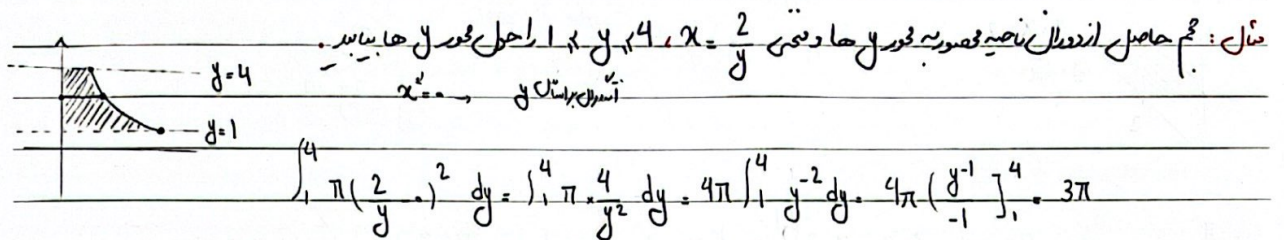 مثال: حجم حاصل از دوران ناحیه محصور به محور y ها و منحنی x = 2/y ، 1 ≤ y ≤ 4 را حول محور y ها بیابید.
y=4
x=0 → انتگرال براساس y
y=1
∫₁⁴ π(2/y - 0)² dy = ∫₁⁴ π × 4/y² dy = 4π ∫₁⁴ y⁻² dy = 4π (y⁻¹/-1]₁⁴ = 3π